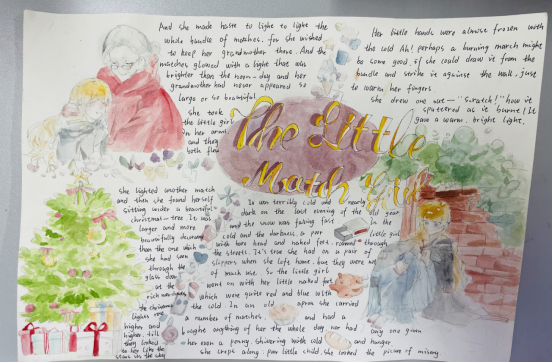 And she made haste to light to light the
whole bundle of matches. for she wished
to keep her grandmother there. And the
matches glowed with a light that was
brighter than the noon-day and her
grandmother had never appeared so
large or so beautiful
She took
the little girl
in her arms.
and they
both flew
Her little hands were almost frozen with
the cold Ah! perhaps a burning match might
be some good if she could draw it from the
bundle and strike it against the wall. just
to warm her fingers
She drew one out—"Scratch!" how it
spattered as it burned! It
gave a warm. bright light.
The Little
Match Girl
She lighted another match
and then she found herself
sitting under a beautiful
christmas-tree. It was
larger and more
beautifully decorated
than the one which
she had seen
through the
glass door
at the
rich merchant's
the christmas
lights rose
higher and
higher. till
they looked
to her like the
stars in the sky
It was terribly cold and nearly
dark on the last evening of the old year
and the snow was falling fast. In the
cold and the darkness. a poor little girl
with bare head and naked feet. roamed through
the streets. It's true she had on a pair of
slippers when she left home. but they were not
of much use. So the little girl
went on with her little naked feet
which were quite red and blue with
the cold In an old apron she carried
a number of matches and had a
bought anything of her the whole day nor had any one given
her even a penny Shivering with cold and hunger
she creeps along. poor little child. She looked the picture of misery